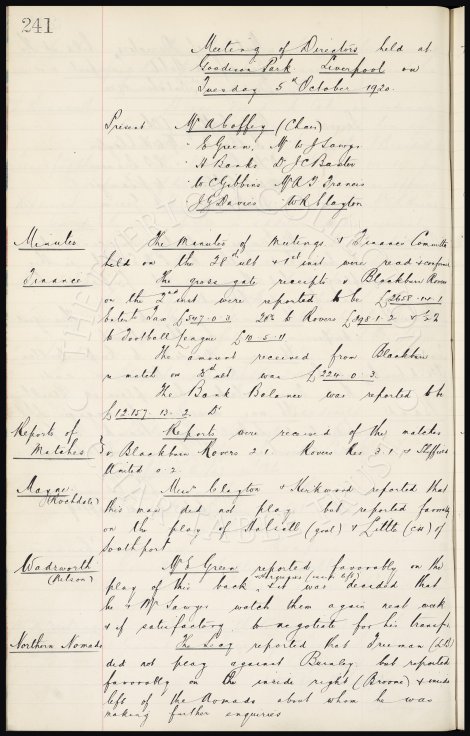 241
Meeting of Directors held at
Goodison Park Liverpool on
Tuesday 5th October 1920.
Present Mr A Coffey (Chair)
" E Green, Mr W J Sawyer
" H Banks Dr J C Baxter
" W C Gibbins Mr A T Francis
" J G Davies W R Clayton
Minutes The Minutes of Meetings & Finance Committee
held on the 28th ult & 1st inst were read & confirmed
Finance The gross gate receipts v Blackburn Rovers
on the 2nd inst were reported to be £2658.14.1
Entert Tax £547.0.3 20% to Rovers £398.1.2 & ½%
to Football League £10.5.11
The amount received from Blackburn
v match on inst was £224.0.3.
The Bank Balance was reported to be
£12157.13.2 Dr
Reports of Matches } Reports were received of the matches
v Blackburn Rovers 2.1 Rovers Res 3.1 & Sheffield
United 0.2.
Mayne (Rochdale) Messrs Clayton & Kirkwood reported that
this man did not play but reported favorably
on the play of Halsall (goal) & Little (CH) of
Southport
Wadsworth (Nelson) Mr E Green reported favorably on the
play of this back, & (inside left) it was decided that
he & Mr Sawyer watch them again next week
& if satisfactory to negotiate for his transfer.
Northern Nomads The Secy reported that Freeman
did not play against Burnley but reported
favorably on the inside right (Broome) & inside
left of the Nomads about whom he was
making further enquiries